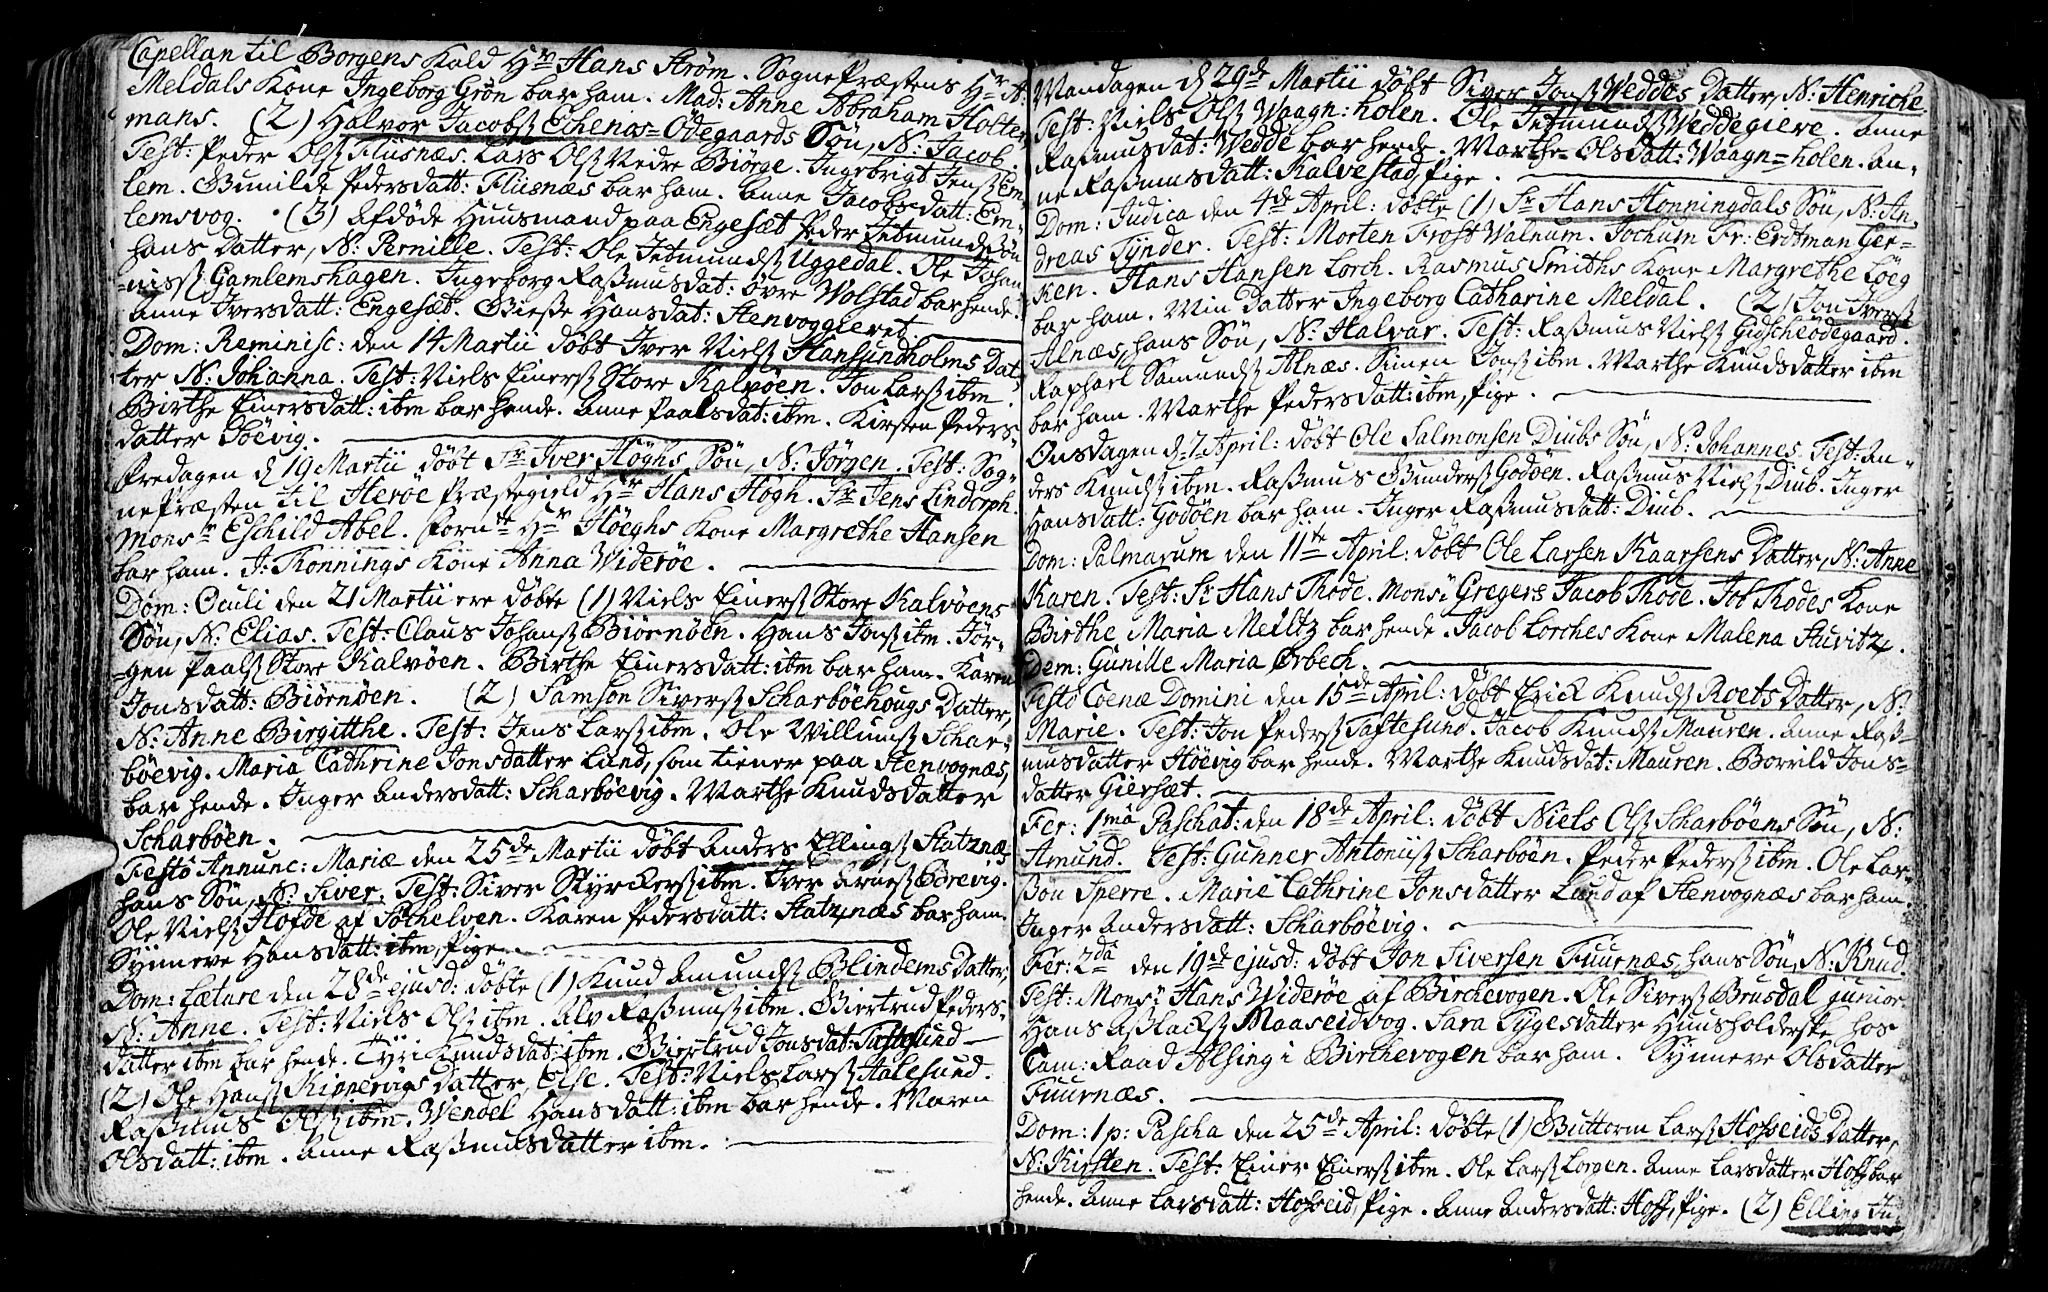 Capellan til Borgens Kald Hr Hans Strøm. SognePræstens Hr A.
Meldals Kone Ingeborg Grøn bar ham. Mad: Anne Abraham Holter-
mans. (2) Halvor Jacobsß Echenæs=Ödegaards Søn, N: Jacob.
Test: Peder Olsß Fliisnæs. Lars Olsß Nedre Biörge. Ingebrigt Jensß Em-
lem. Gunilde Pedersdatt: Fliisnæs bar ham. Anne Jacobsdatt: Em-
lemsvog. (3) Afdöde Huusmand paa Engesæt Peder Jetmundsön
hans Datter, N: Pernille. Test: Ole Jetmundsß Uggedal. Ole Johan-
nisß Gamlemshagen. Ingeborg Raßmusdat: övre Wolstad bar hende.
Anne Iversdatt: Engesæt. Gieße Hansdat: Stenvoggieret
Dom: Reminisc: den 14 Martii döbt Iver Nielsß Hansundholms Dat-
ter N: Johanna. Test: Niels Einersß Store Kalvöen. Jon Larsß ibm.
Birthe Einersdatt: ibm bar hende. Anne Paalsdat: ibm. Kirsten Peders-
datter Söevig.
Fredagen d 19 Martii döbt Sr Iver Höghs Søn, N: Jörgen. Test: Sog-
nePræsten til Heröe Præstegield Hr Hans Högh. Sr Jens Lindorph.
Monsr Eschild Abel. Fornte Hr Höeghs Kone Margrethe Hansen
bar ham. J. Rönnings Kone Anna Wideröe.
Dom: Oculi den 21 Martii ere döbte (1) Niels Einersß Store Kalvöens
Søn, N: Elias. Test: Claus Johansß Biörnöen. Hans Jonsß ibm. Jör-
gen Paalsß Store Kalvöen. Birthe Einersdatt: ibm bar ham. Karen
Jonsdatt: Biörnöen. (2) Samson Siversß Scharböehougs Datter,
N: Anne Birgitthe. Test: Jens Larsß ibm. Ole Willumsß Schar-
böevig. Maria Cathrine Jonsdatter Lund, som tiener paa Stenvognæs,
bar hende. Inger Andersdatt: Scharböevig. Marthe Knudsdatter
Scharböen.
Festo Annunc: Mariæ den 25de Martii döbt Anders Ellingsß Statznæs
hans Søn, N: Siver. Test: Siver Styrckersß ibm. Iver Arnesß Borevig.
Ole Nielsß Hofde af Sörhelven. Karen Pedersdatt: Statznæs bar ham.
Synneve Hansdatt: ibm, Pige.
Dom: Lætare den 28de ejusd: döbte (1) Knud Amundsß Blindems Datter,
N: Anne. Test: Niels Olsß ibm. Alv Raßmusß ibm. Giertrud Peders-
datter ibm bar hende. Tyri Knudsdat: ibm. Giertrud Jonsdat: Taftesund
(2) Ole Hansß Kippervigs Datter, Else. Test: Niels Larsß Aalesund.
Raßmus Olsß ibm. Wendel Hansdatt: ibm bar hende. Maren
Olsdatt: ibm. Anne Raßmusdatter ibm.
Mandagen d 29de Martii döbt Siver Jonsß Weddes Datter, N: Henriche
Test: Niels Olsß Waagn:holen. Ole Jetmundsß Weddegiere. Anne
Raßmusdat: Wedde bar hende. Marthe Olsdatt: Waagn=holen. An-
ne Raßmusdatt: Kalvestad, Pige.
Dom: Judica den 4de April: döbte (1) Sr Hans Honningdals Søn, N: An-
dreas Tynder. Test: Morten Frost Walnum. Jochum Fr: Erdtman Ger-
ken. Hans Hansen Lorch. Rasmus Smiths Kone Margrethe Löeg
bar ham. Min Datter Ingeborg Catharine Meldal. (2) Jon Iversß
Alnæs, hans Søn, N: Halvar. Test: Raßmus Nielsß Gidscheödegaard.
Raphael Samundsß Alnæs. Simen Jonsß ibm. Marthe Knudsdatter ibm
bar ham. Marthe Pedersdatt: ibm, Pige.
Onsdagen d 7 April: döbt Ole Salmonsen Diubs Søn, N: Johannes. Test: An-
ders Knudsß ibm. Raßmus Gundersß Godöen. Raßmus Nielsß Diub. Inger
Hansdatt: Godöen bar ham. Inger Raßmusdatt: Diub.
Dom: Palmarum den 11te April: döbt Ole Larsen Kaarsens Datter, N: Anne
Karen. Test: Sr Hans Thode. Monsr Gregers Jacob Thode. Job Thodes Kone
Birthe Maria Meiltz bar hende. Jacob Lorches Kone Malena Stuvitz.
Dem: Gunille Maria Ørbech.
Festo Coenæ Domini den 15de April: döbt Erick Knudsß Roets Datter, N:
Marie. Test: Jon Pedersß Taftesund. Jacob Knudsß Mauren. Anne Raß-
musdatter Höevig bar hende. Marthe Knudsdat: Mauren. Borrild Jons-
datter Giersæt.
Fer: 1ma Paschat: den 18de April: döbt Niels Olsß Scharböens Søn, N:
Amund. Test: Gunner Antonisß Scharböen. Peder Pedersß ibm. Ole Lar-
son Sperre. Marie Cathrine Jonsdatter Lund af Stenvognæs bar ham.
Inger Andersdatt: Scharböevig.
Fer: 2da den 19de ejusd: döbt Jon Siversen Fuurnæs, hans Søn, N: Knud.
Test: Monsr Hans Wideröe af Birchevogen. Ole Siversß Brusdal junior
Hans Aßlacksß Maaseidvog. Sara Tygesdatter Huusholderske hos
Cam: Raad Alsing i Birchevogen bar ham. Synneve Olsdatter
Fuurnæs.
Dom: 1 p: Pascha den 25de April: döbte (1) Guttorm Larsß Hofseids Datter,
N: Kirsten. Test: Einer Einersß ibm. Ole Larsß Lorgen. Anne Larsdatter Hoff bar
hende. Anne Larsdatt: Hofseid, Pige. Anne Andersdatt: Hoff, Pige. (2) Elling Iv-